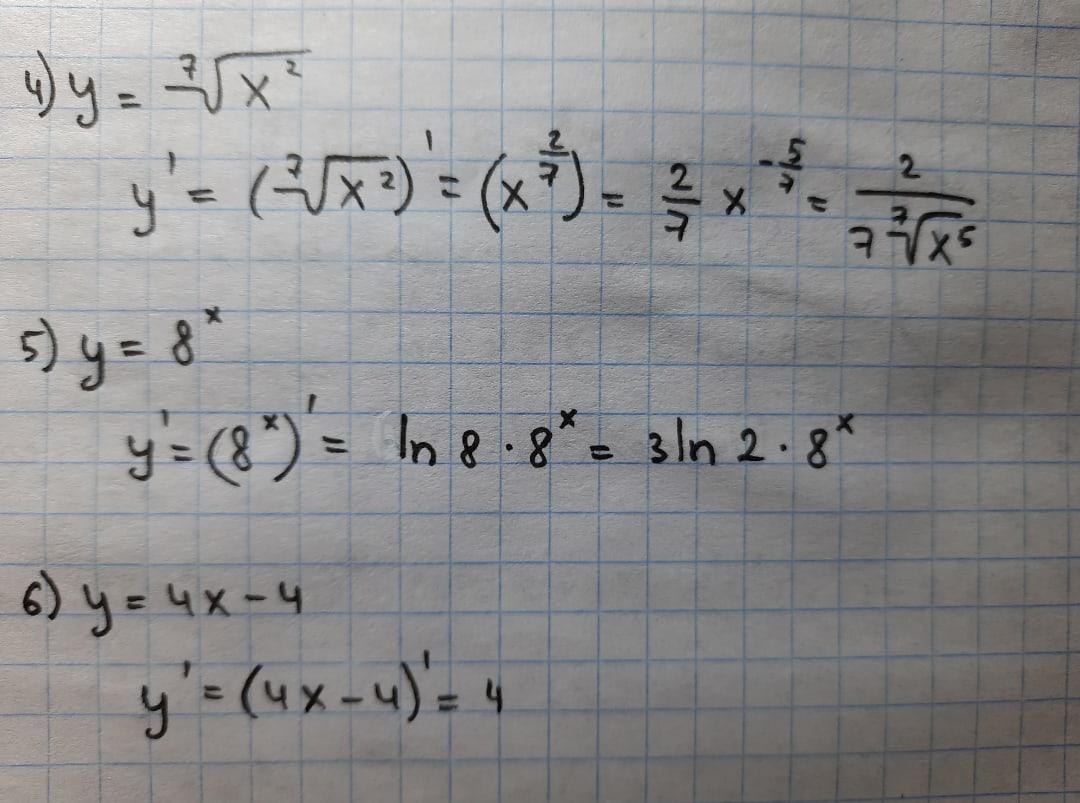 4) y = ⁷√x²
y' = (⁷√x²)' = (x^(2/7)) = 2/7 x^(-5/7) = 2/(7 ⁷√x⁵)
5) y = 8ˣ
y' = (8ˣ)' = ln 8 · 8ˣ = 3 ln 2 · 8ˣ
6) y = 4x - 4
y' = (4x - 4)' = 4